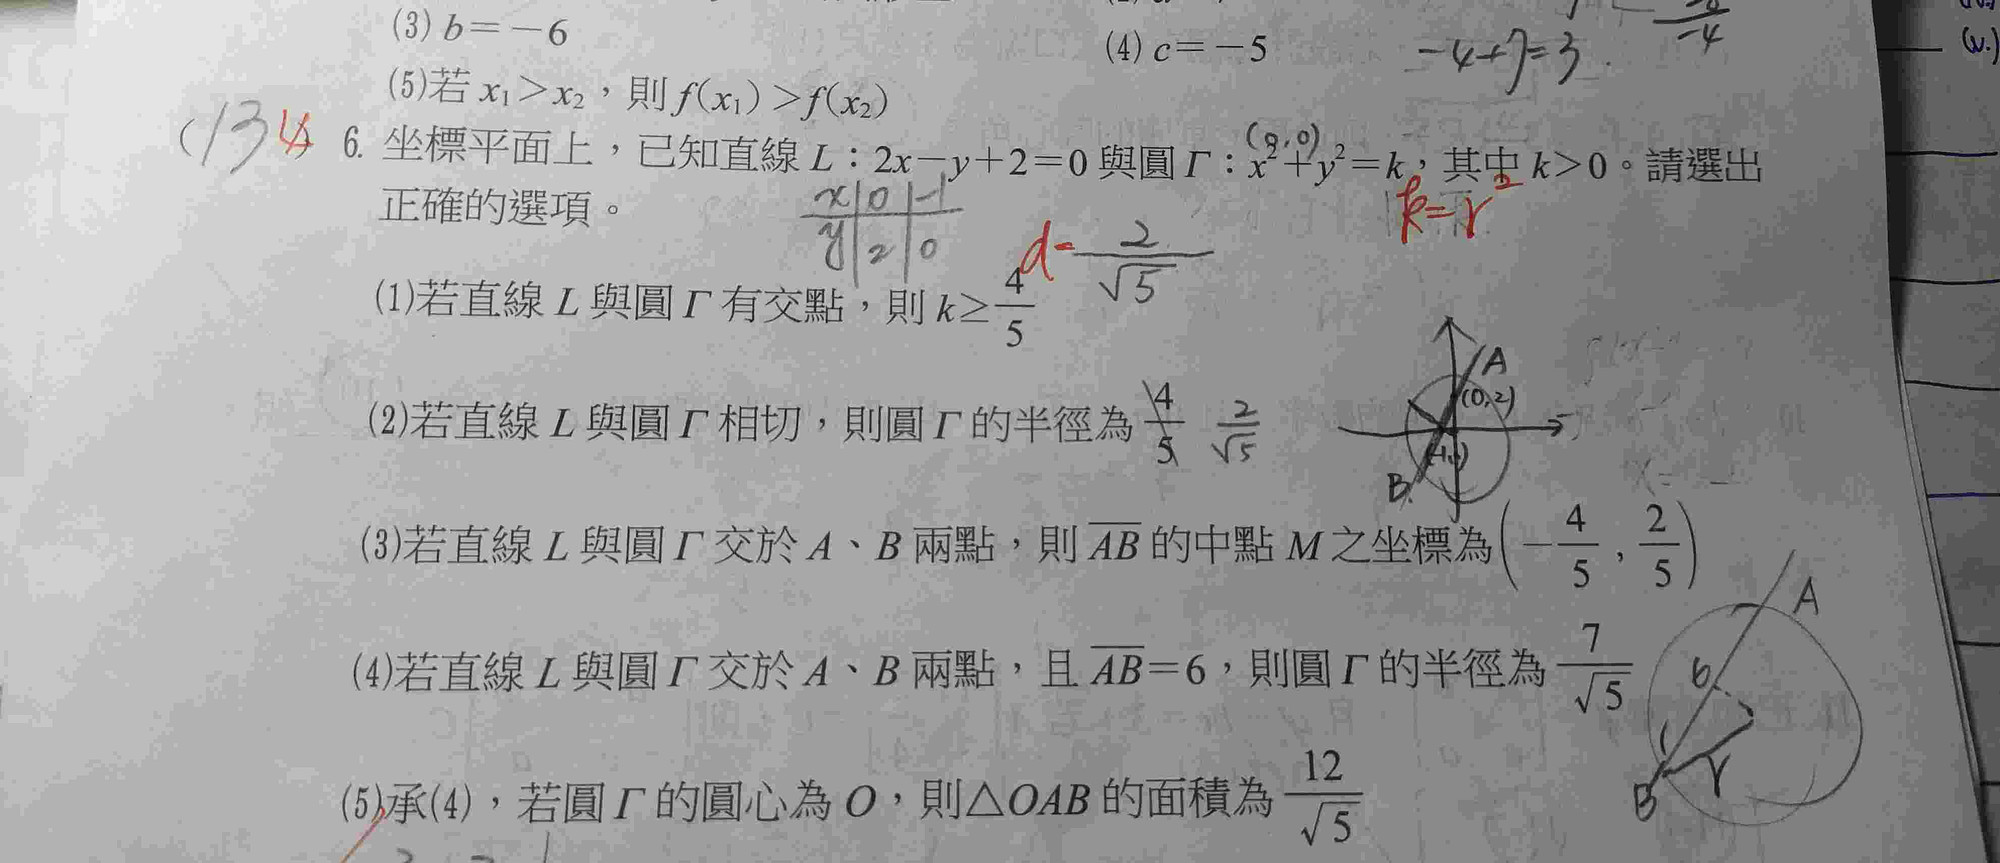 (3) b＝－6
(4) c＝－5
－4+7=3
(5)若 x₁＞x₂，則 f(x₁)＞f(x₂)
(134)
6. 坐標平面上，已知直線 L：2x－y＋2＝0 與圓 Γ：x²＋y²＝k，其中 k＞0。請選出
(0,0)
正確的選項。
x 0 -1
y 2 0
d= 2/√5
k=r²
(1)若直線 L 與圓 Γ 有交點，則 k≥4/5
(2)若直線 L 與圓 Γ 相切，則圓 Γ 的半徑為 4/5 2/√5
A
(0,2)
B
(3)若直線 L 與圓 Γ 交於 A、B 兩點，則 AB 的中點 M 之坐標為(－4/5 , 2/5)
(4)若直線 L 與圓 Γ 交於 A、B 兩點，且 AB＝6，則圓 Γ 的半徑為 7/√5
A
6
B
r
(5)承(4)，若圓 Γ 的圓心為 O，則△OAB 的面積為 12/√5